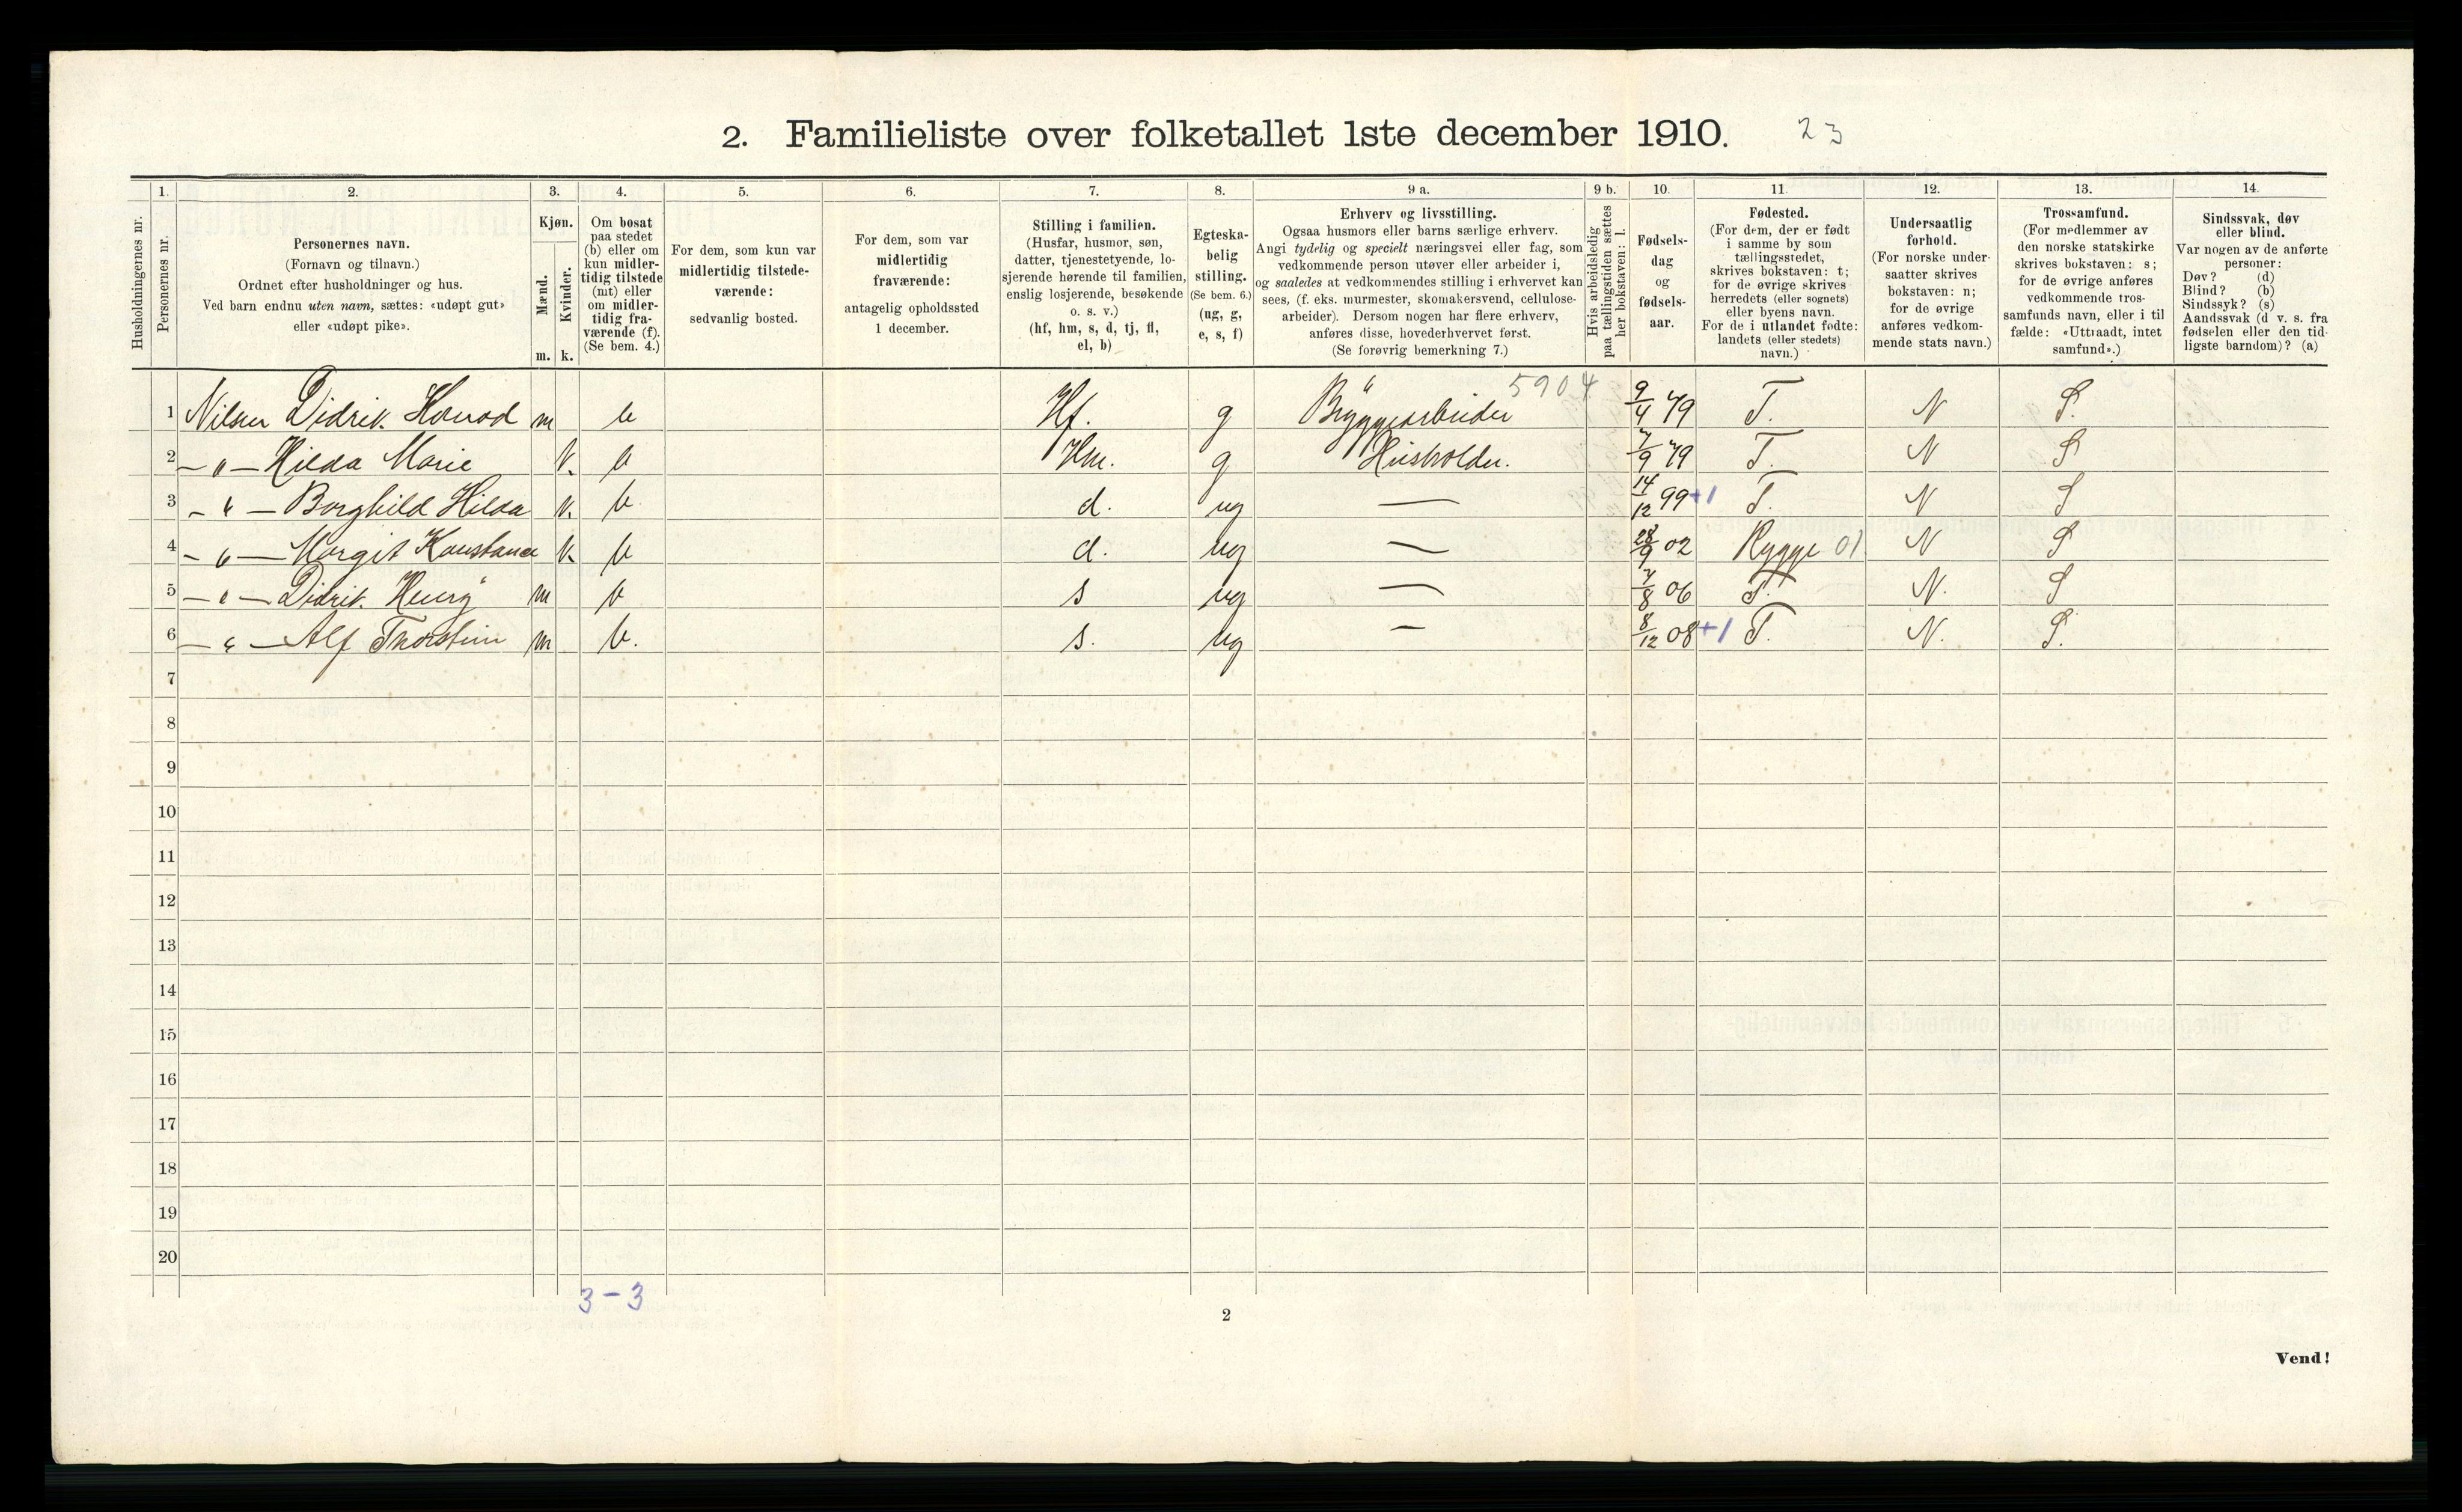 2. Familieliste over folketallet 1ste december 1910. 23
Husholdningernes nr.
1. Personernes nr.
2. Personernes navn.
(Fornavn og tilnavn.)
Ordnet efter husholdninger og hus.
Ved barn endnu uten navn, sættes: «udøpt gut»
eller «udøpt pike».
3. Kjøn.
Mænd. m.
Kvinder. k.
4. Om bosat
paa stedet
(b) eller om
kun midler-
tidig tilstede
(mt) eller
om midler-
tidig fra-
værende (f).
(Se bem. 4.)
5. For dem, som kun var
midlertidig tilstede-
værende:
sedvanlig bosted.
6. For dem, som var
midlertidig
fraværende:
antagelig opholdssted
1 december.
7. Stilling i familien.
(Husfar, husmor, søn,
datter, tjenestetyende, lo-
sjerende hørende til familien,
enslig losjerende, besøkende
o. s. v.)
(hf, hm, s, d, tj, fl,
el, b)
8. Egteska-
belig
stilling.
(Se bem. 6.)
(ug, g,
e, s, f)
9 a. Erhverv og livsstilling.
Ogsaa husmors eller barns særlige erhverv.
Angi tydelig og specielt næringsvei eller fag, som
vedkommende person utøver eller arbeider i,
og saaledes at vedkommendes stilling i erhvervet kan
sees, (f. eks. murmester, skomakersvend, cellulose-
arbeider). Dersom nogen har flere erhverv,
anføres disse, hovederhvervet først.
(Se forøvrig bemerkning 7.)
9 b. Hvis arbeidsledig
paa tællingstiden sættes
her bokstaven: l.
10. Fødsels-
dag
og
fødsels-
aar.
11. Fødested.
(For dem, der er født
i samme by som
tællingsstedet,
skrives bokstaven: t;
for de øvrige skrives
herredets (eller sognets)
eller byens navn.
For de i utlandet fødte:
landets (eller stedets)
navn.)
12. Undersaatlig
forhold.
(For norske under-
saatter skrives
bokstaven: n;
for de øvrige
anføres vedkom-
mende stats navn.)
13. Trossamfund.
(For medlemmer av
den norske statskirke
skrives bokstaven: s;
for de øvrige anføres
vedkommende tros-
samfunds navn, eller i til
fælde: «Uttraadt, intet
samfund».)
14. Sindssvak, døv
eller blind.
Var nogen av de anførte
personer:
Døv? (d)
Blind? (b)
Sindssyk? (s)
Aandssvak (d v. s. fra
fødselen eller den tid-
ligste barndom)? (a)
1 Nilsen Didrik Konrad m b Hf. g Bryggearbeider 5904 9/4 79 T. N S.
2 – " – Hilda Marie k. b Hm. g Husholder. 7/9 79 T. N S
3 – " – Borghild Hilda k. b d. ug — 14/12 99 +1 T. N S
4 – " – Margit Konstance k b d. ug — 28/9 02 Rygge 01 N S
5 – " – Didrik m b s ug — 7/8 06 T. N. S
6 – " – Alf Thorstein m b. s. ug — 8/12 08 +1 T. N. S.
7
8
9
10
11
12
13
14
15
16
17
18
19
20
3 – 3
2
Vend!